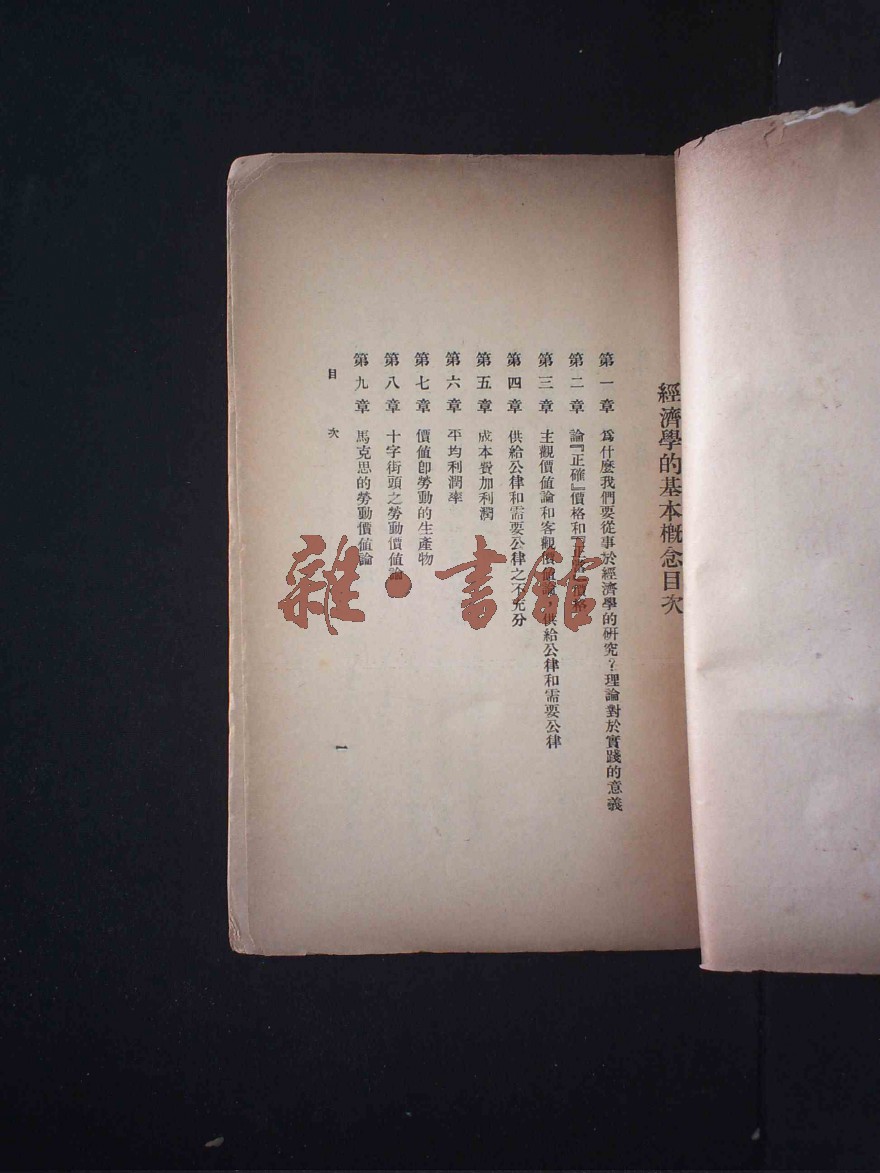 經濟學的基本槪念目次
第一章 爲什麼我們要從事於經濟學的硏究？理論對於實踐的意義
第二章 論『正確』價格和『正當』價格
第三章 主觀價値論和客觀價値論，供給公律和需要公律
第四章 供給公律和需要公律之不充分
第五章 成本費加利潤
第六章 平均利潤率
第七章 價値卽勞動的生產物
第八章 十字街頭之勞動價値論
第九章 馬克思的勞動價値論
目次 一
雜·書館